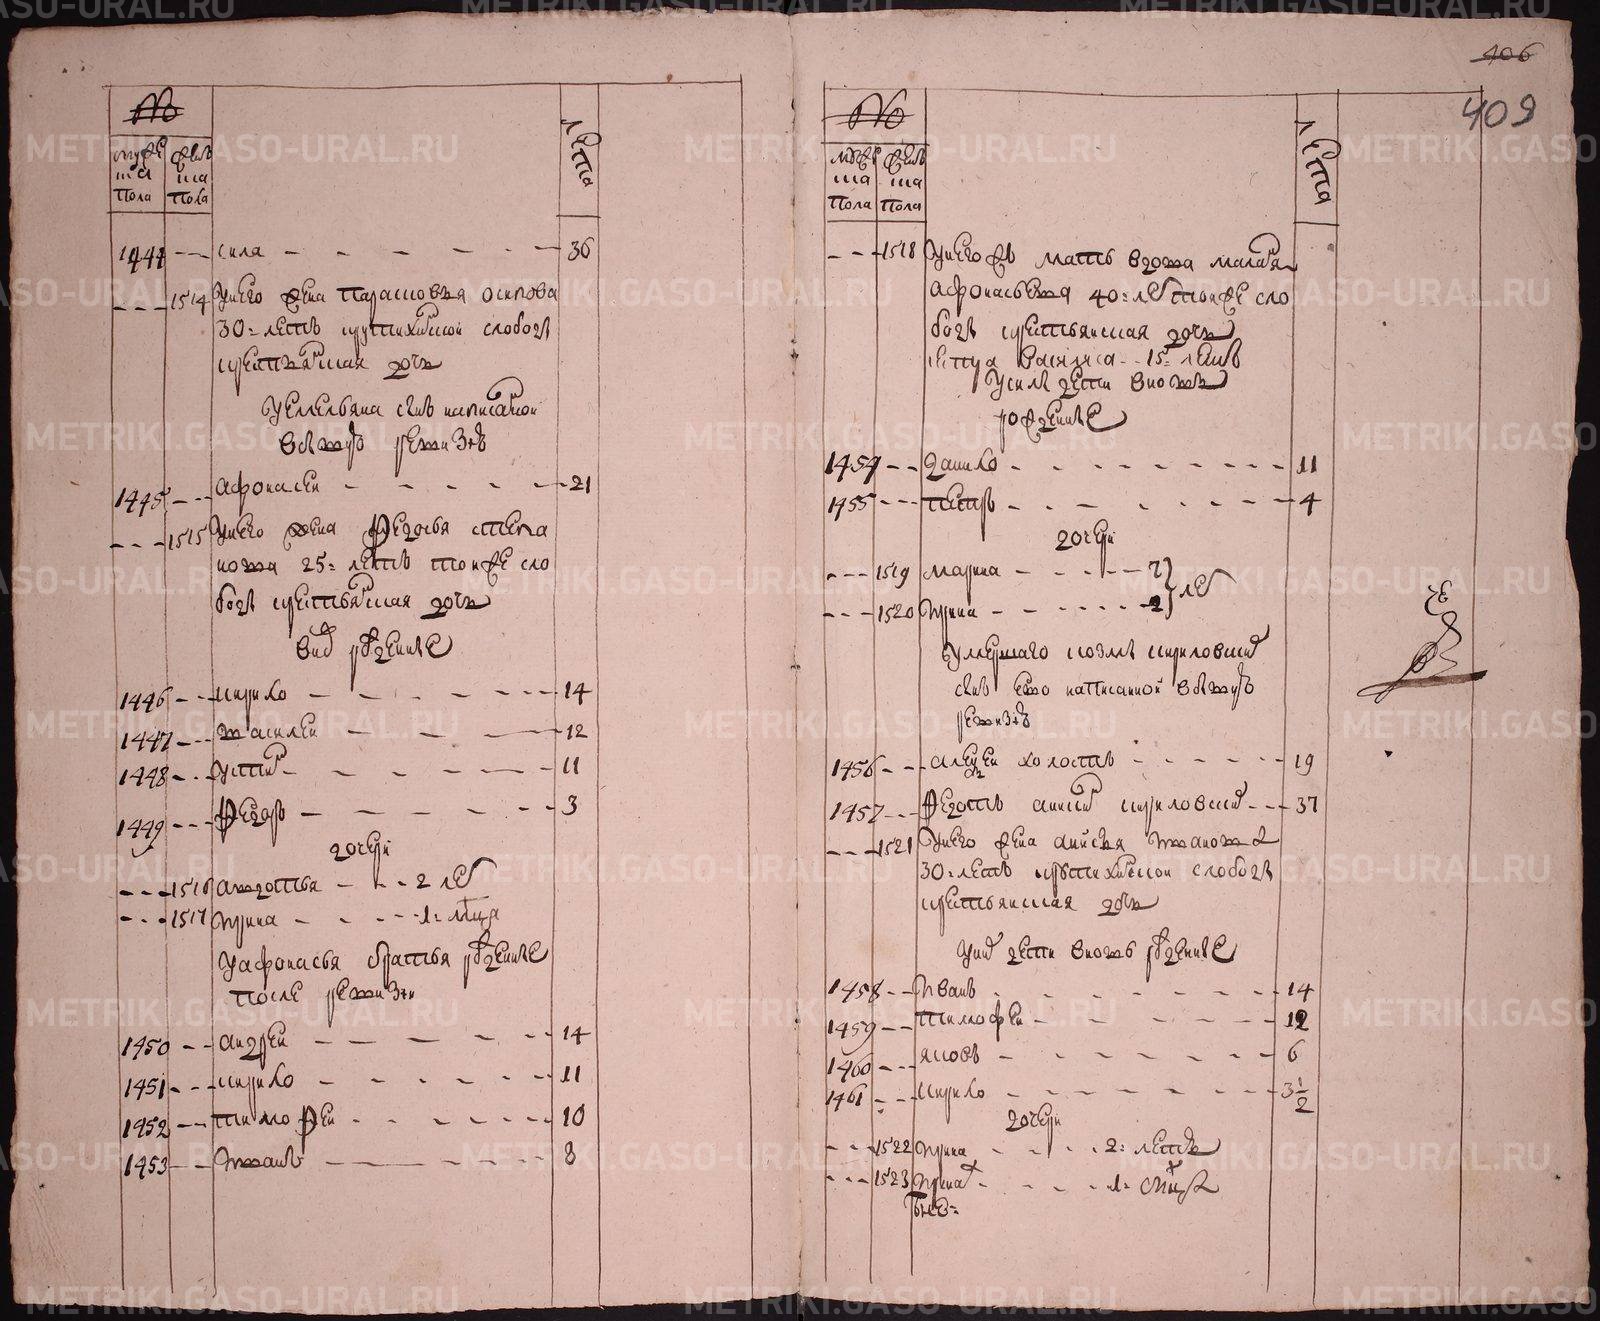 406
409
№
мужеска пола
женска пола
лета
1444 сила 36
1514 Унего жена парасковья осипова
30: летъ крутихинской слободы
крестьянская дочь
Уемельяна сынъ написанной
вбытность ревизиі
1445 афонасеи 21
1515 Унего жена федосья степа
нова 25: летъ тоиже сло
боды крестьянская дочь
рожденные
1446 кирило 14
1447 василеи 12
1448 устин 11
1449 федоръ 3
дочери
1516 авдотья 2 лет
1517 ирина 1: месяца
Уафонасья братья рожденные
после ревизии
1450 андреи 14
1451 кирило 11
1452 тимофеи 10
1453 иванъ 8
№
мужеска пола
женска пола
лета
1518 Унегожъ мать вдова
афонасьева 40: лет тоиже сло
боды крестьянская дочь
сестра василиса 15: летъ
Усилы дети вновь
рожденные
1454 данило 11
1455 петръ 4
дочери
1519 марина 7
лет
1520 ирина 2
Умершаго козмы кириловыхъ
сынъ ево написанной вбытность
ревизиі
1456 алексеи холостъ 19
1457 федотъ кириловыхъ 37
1521 Унего жена анисья иванова
30: летъ крутихинской слободы
крестьянская дочь
Уних дети вновь рожденные
1458 иванъ 14
1459 тимофеи 12
1460 яковъ 6
1461 кирило 3 1/2
дочери
1522 ирина 2: летъ
1523 ирина 1: месяца
METRIKI.GASO-URAL.RU